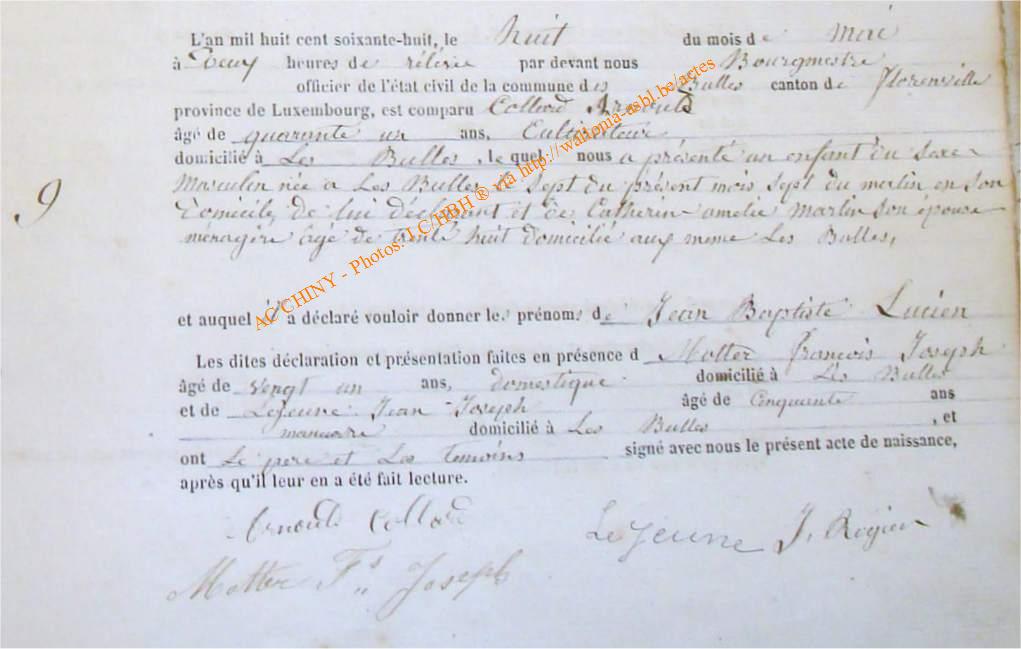 L'an mil huit cent soixante-huit, le huit du mois de
à Deux heures de rélivée par devant nous Bourgmestre
officier de l'état civil de la commune des Bulles canton de florenville
province de Luxembourg, est comparu Collard Arnould
âgé de quarante un ans, Cultivateur
domicilié à Les Bulles, lequel nous a présenté un enfant du sexe
9
Masculin née a Les Bulles le sept du présent mois sept du matin en son
Domicile, de lui déclarant et de Catherine amelie Martin son épouse
ménagère âgé de trente huit domicilié aux meme Les Bulles,
et auquel il a déclaré vouloir donner les prénoms de Jean Baptiste Lucien
Les dites déclaration et présentation faites en présence d Motter françois Joseph
âgé de vengt un ans, domestique domicilié à Les Bulles
et de Lejeune Jean Joseph âgé de Cinquante ans
domicilié à Les Bulles, et
ont Le pere et Les Temoins signé avec nous le présent acte de naissance,
après qu'il leur en a été fait lecture.
Arnould Collard
Lejeune J.
Motter Fs Joseph
AC CHINY - Photos: LC HBH ® via http://wallonia-asbl.be/actes